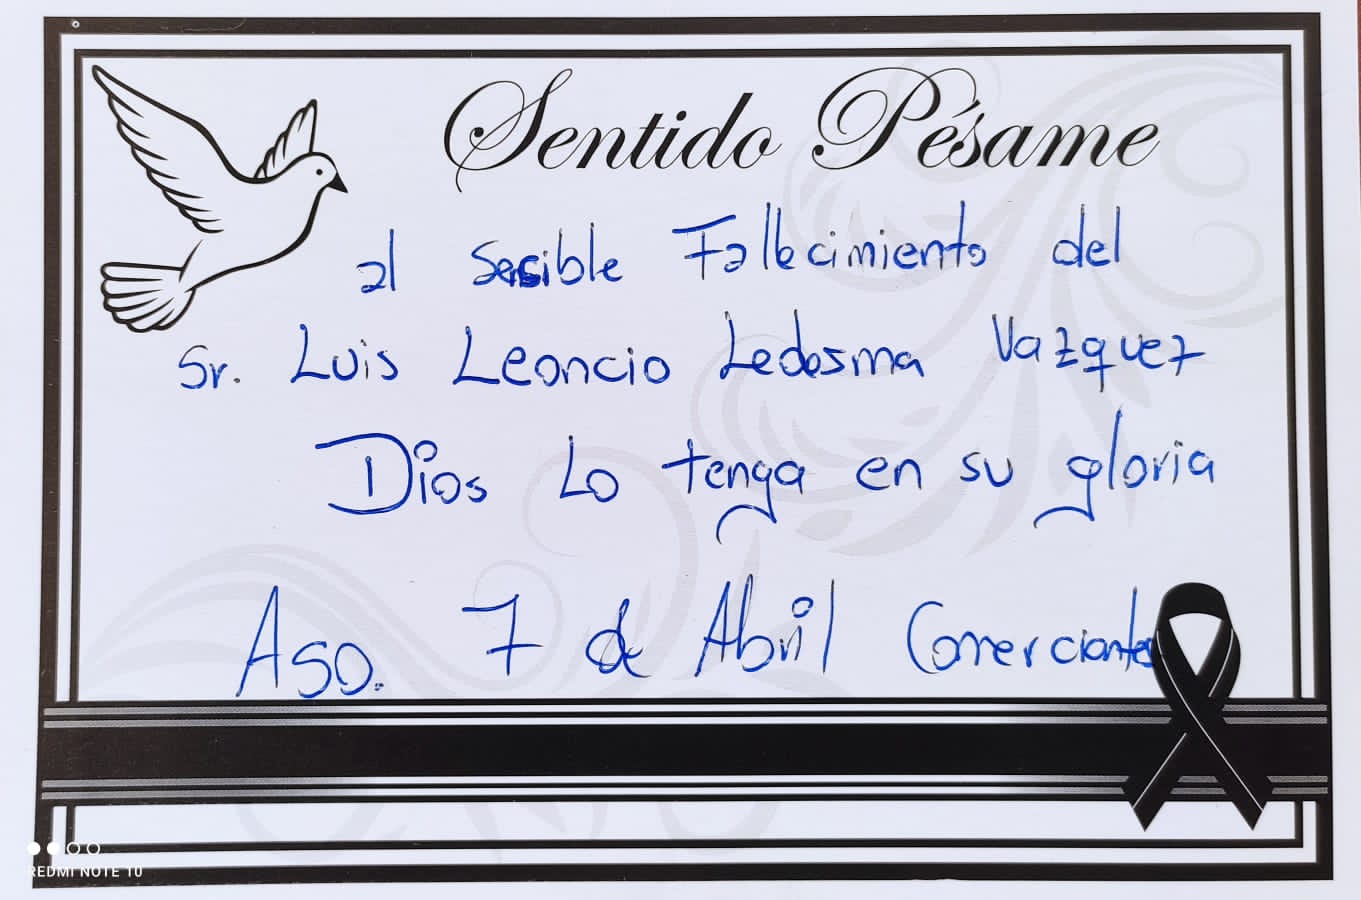 Sentido Pésame
al Sensible Fallecimiento del
Sr. Luis Leoncio Ledesma Vazquez
Dios Lo tenga en su gloria
Aso. 7 de Abril Comerciantes
REDMI NOTE 10